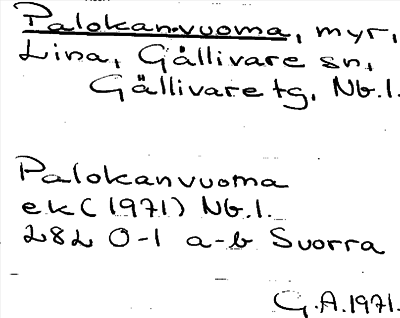 Palokanvuoma, myr,
Lina, Gällivare sn,
Gällivare tg, Nb.l.
Palokanvuoma
ek (1971) Nb.l.
28L 0-1 a-b Suorra
G.A. 1971.